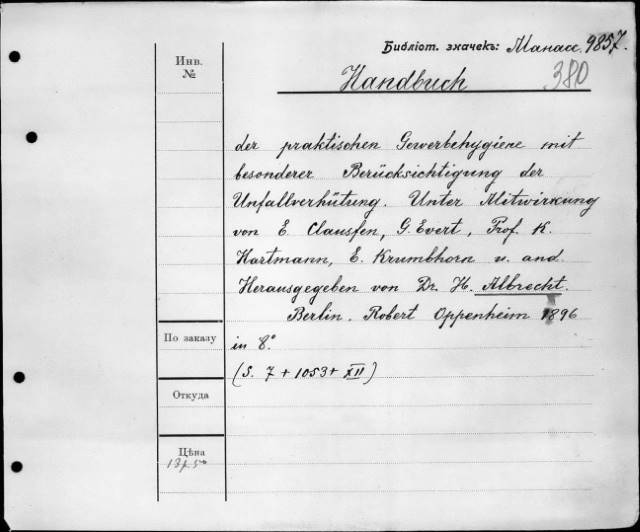 Библіот. значекъ: Манасс. 9857.
Инв.
№
Handbuch 380
der praktischen Gewerbehygiene mit
besonderer Berücksichtigung der
Unfallverhütung. Unter Mitwirkung
von E. Claussen, G. Evert, Prof. K.
Hartmann, E. Krumbhorn u. and.
Herausgegeben von Dr. H. Albrecht.
Berlin. Robert Oppenheim 1896
По заказу
in 8°.
(S. 7 + 1053 + XII)
Откуда
Цѣна